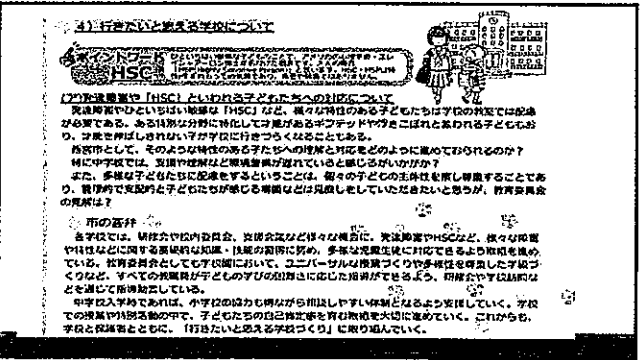 4) 行きたいと思える学校について
ポイントワード
HSC
(ア)発達障害や「HSC」といわれる子どもたちへの対応について
発達障害やひといちばい敏感な「HSC」など、様々な特性のある子どもたちは学校の教室では配慮
が必要である。ある特別な分野に特化して才能があるギフテッドや浮きこぼれと言われる子どももお
り、才能を伸ばしきれない子が学校に行きづらくなることもある。
市として、そのような特性のある子たちへの理解と対応をどのように進めておられるのか？
特に中学校では、支援や理解など環境整備が遅れていると感じるがいかがか？
また、多様な子どもたちに配慮をするということは、個々の子どもの主体性を尊重することであ
り、管理的で支配的と子どもたちが感じる などは見直しをしていただきたいと思うが、教育委員会
の見解は？
市の答弁
各学校では、研修会や校内委員会、支援会議など様々な機会に、発達障害やHSCなど、様々な障害
や特性などに関する基礎的な知識・技能の習得に努め、多様な児童生徒に対応できるよう取組を進め
ている。教育委員会としても学校園において、ユニバーサルな授業づくりや多様性を尊重した学級づ
くりなど、すべての教職員が子どもの学びの困難さに応じた指導ができるよう、研修会や学校訪問な
どを通じて指導助言している。
中学校入学時であれば、小学校の協力も得ながら相談しやすい体制となるよう支援していく。学校
での授業や特別活動の中で、子どもたちの自己肯定感を育む取組を大切に進めていく。これからも、
学校と保護者とともに、「行きたいと思える学校づくり」に取り組んでいく。